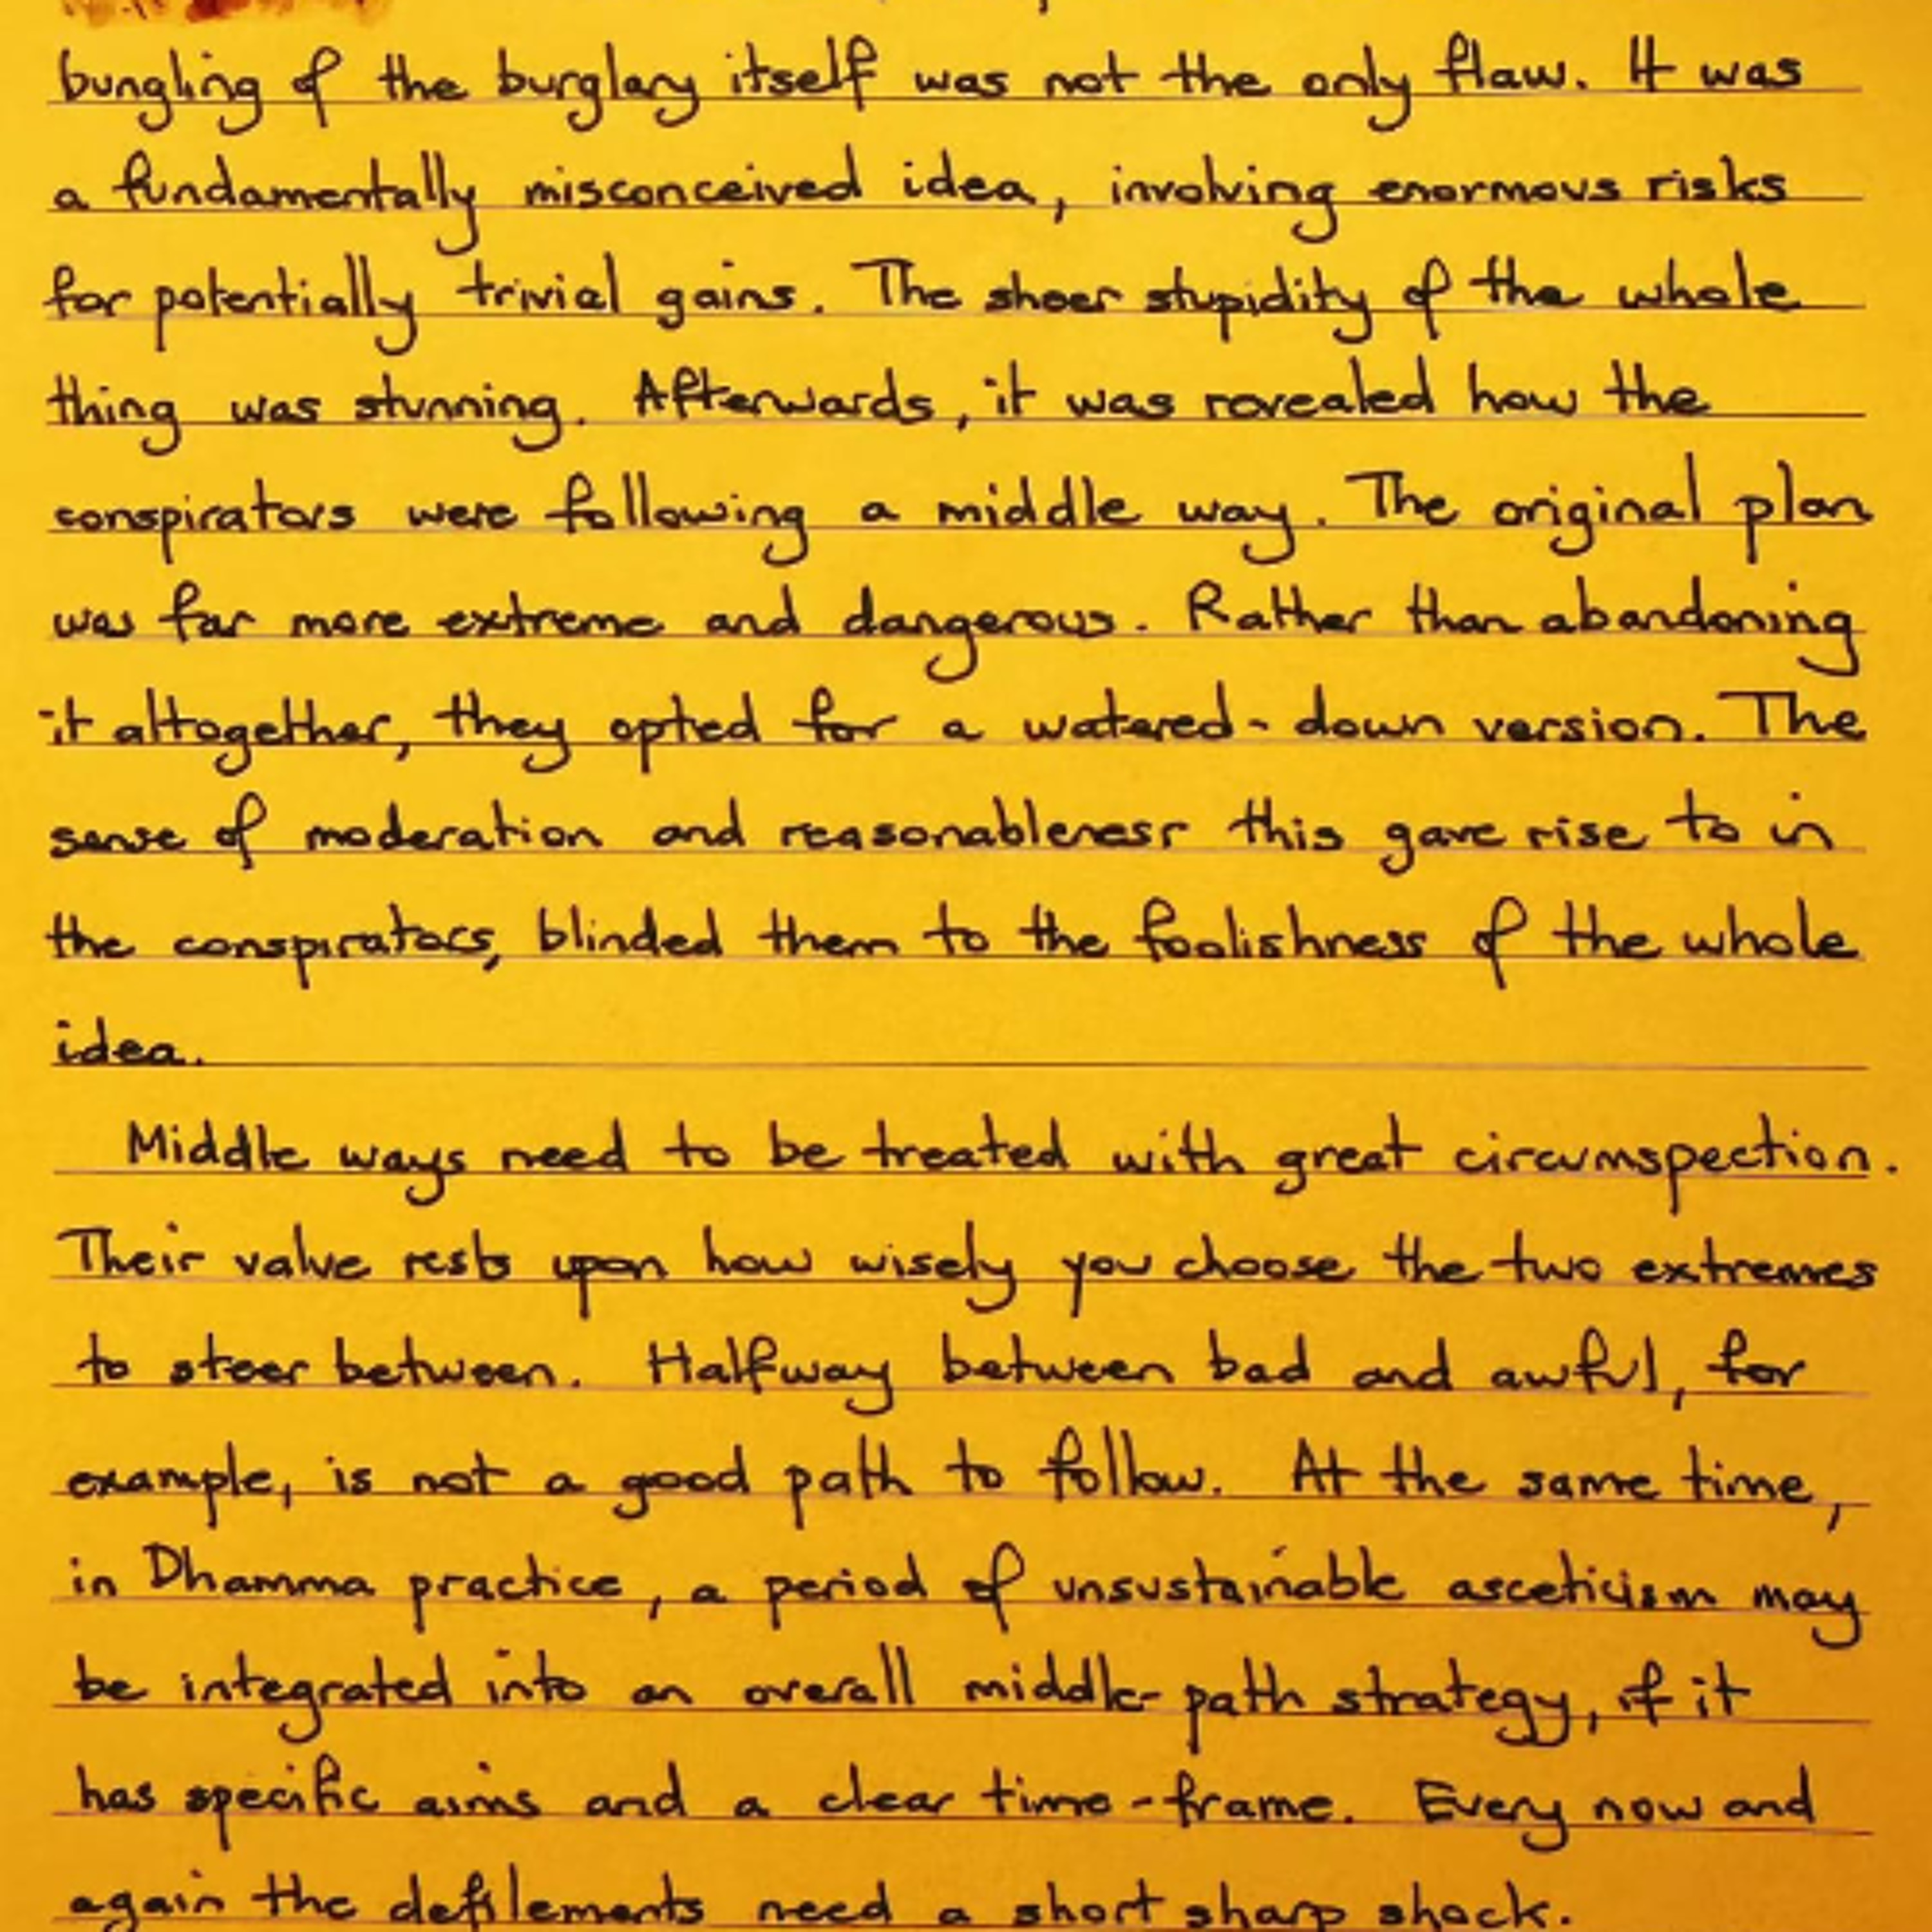 bungling of the burglary itself was not the only flaw. It was
a fundamentally misconceived idea, involving enormous risks
for potentially trivial gains. The sheer stupidity of the whole
thing was stunning. Afterwards, it was revealed how the
conspirators were following a middle way. The original plan
was far more extreme and dangerous. Rather than abandoning
it altogether, they opted for a watered-down version. The
sense of moderation and reasonableness this gave rise to in
the conspirators, blinded them to the foolishness of the whole
idea.
Middle ways need to be treated with great circumspection.
Their value rests upon how wisely you choose the two extremes
to steer between. Halfway between bad and awful, for
example, is not a good path to follow. At the same time,
in Dhamma practice, a period of unsustainable asceticism may
be integrated into an overall middle-path strategy, if it
has specific aims and a clear time-frame. Every now and
again the defilements need a short sharp shock.